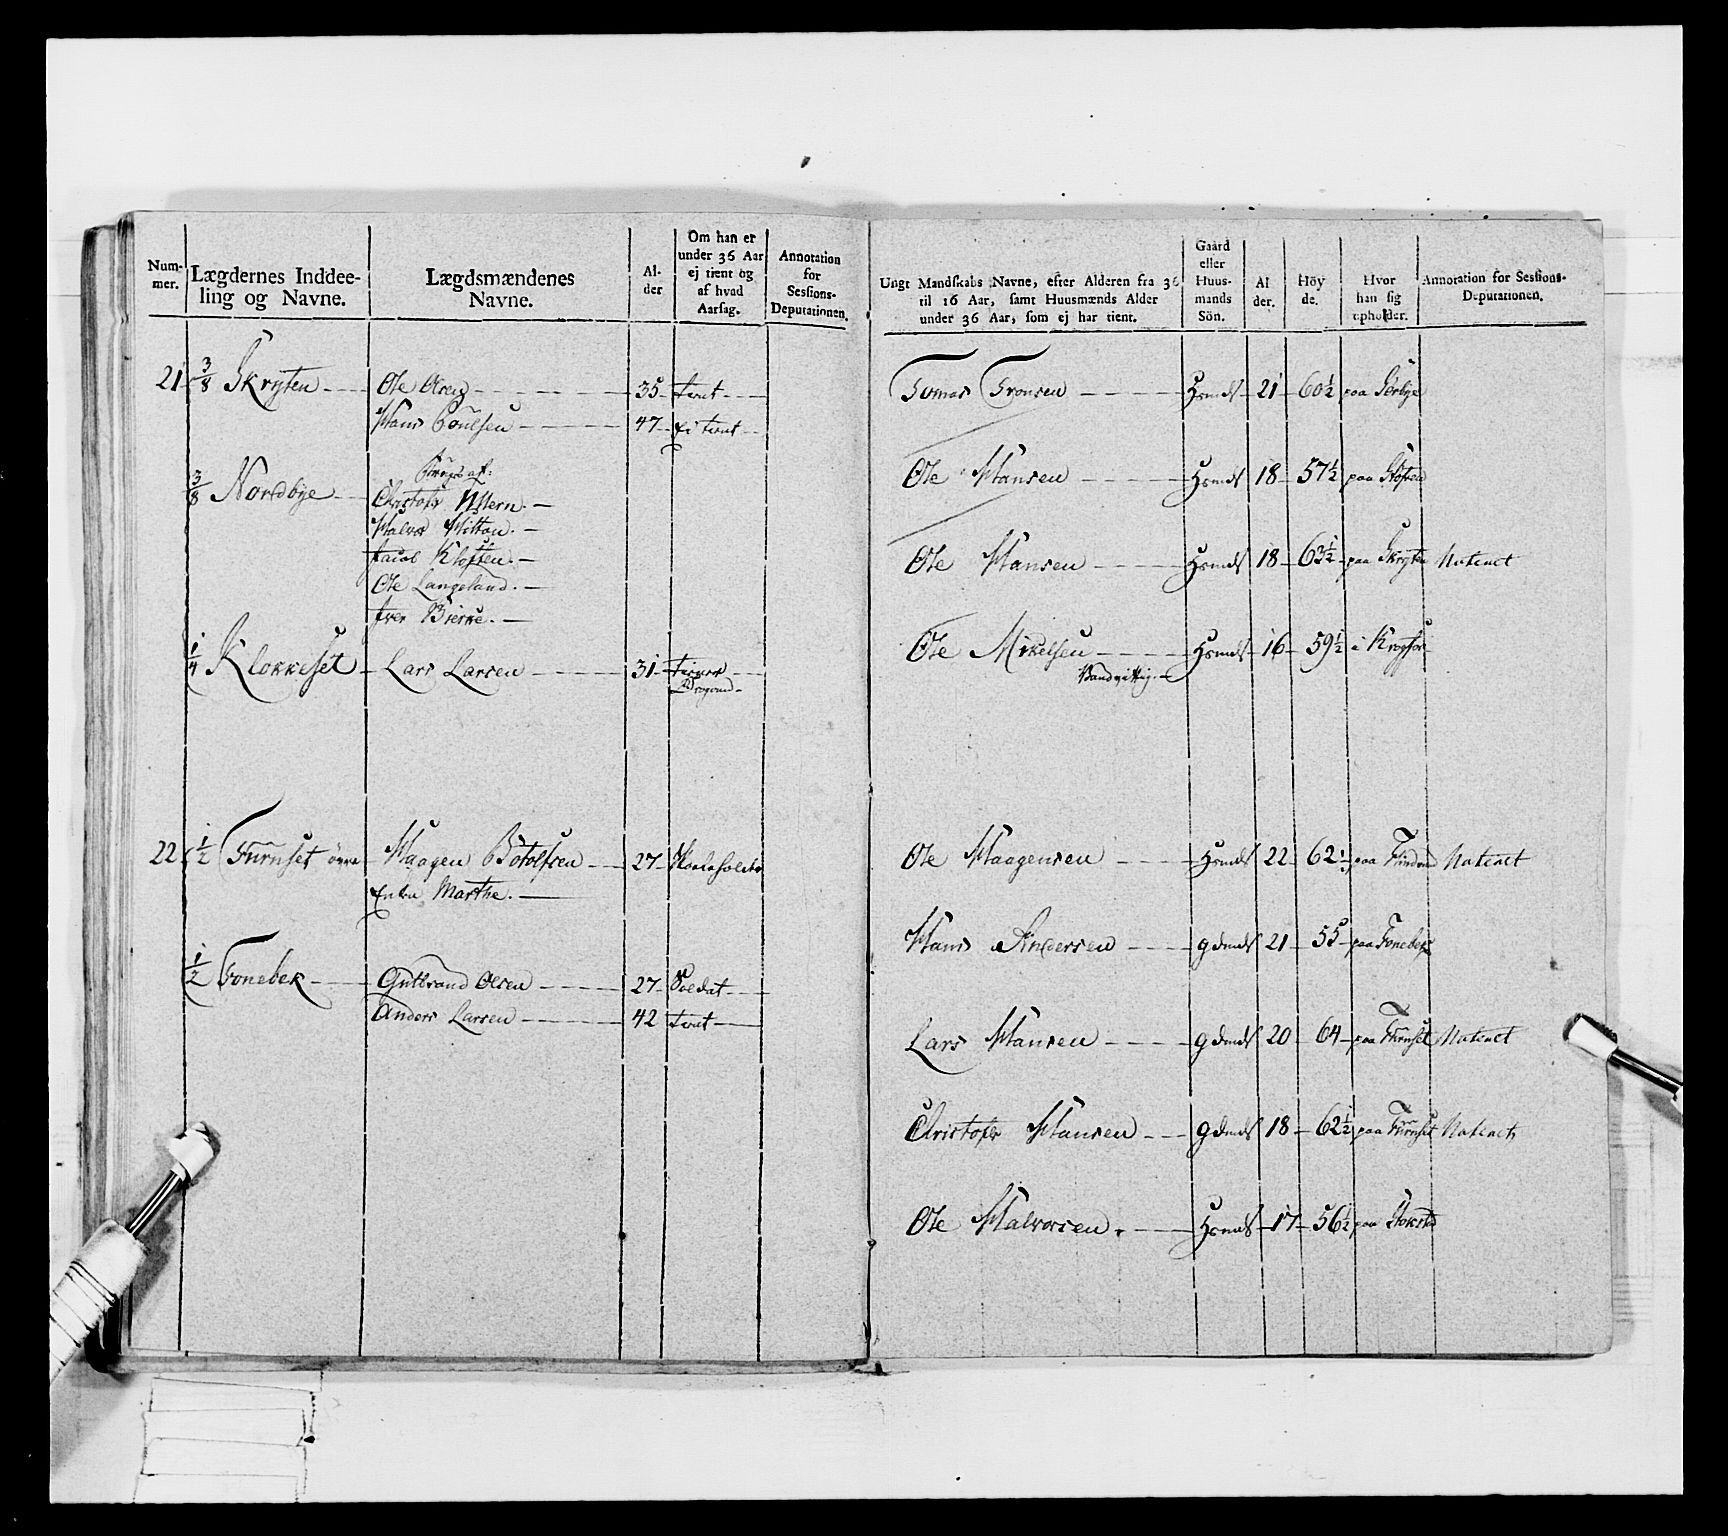 Num-
mer.
Lægdernes Inddee-
ling og Navne.
Lægdsmændenes
Navne.
Al-
der
Om han er
under 36 Aar
ej tient og
af hvad
Aarsag.
Annotation
for
Sessions-
Deputationen.
21 3/8 Skryten Ole Olsen 35 tient
Hans Poulsen 47 Ei tient
3/8 Nordbye
Christofer
Halvor
Jacob Kloften.
Ole Langeland.
Iver Bierke.
1/4 Klokkeset Lars Larsen 31
Dragoun
22 1/2 Furuset øvre Haagen Botolfsen 27
Enken Marthe.
1/2 Fonebek Gulbrand Olsen 27 Soldat
Anders Larsen 42 tient
Ungt Mandskabs Navne, efter Alderen fra 36
til 16 Aar, samt Huusmænds Alder
under 36 Aar, som ej har tient.
Gaard
eller
Huus-
mands
Sön.
Al
der.
Höy
de.
Hvor
han sig
opholder.
Annotation for Sessions-
Deputationen.
Tomas Tronsen Hsmds 21 60 1/2 paa
Ole Hansen Hsmds 18 57 1/2 paa Kloften
Ole Hansen Hsmds 18 63 1/2 paa Skryten Noteret
Ole Mikelsen Hsmds 16 59 1/2 i
Vandvittig.
Ole Haagensen Hsmds 22 62 paa Noteret
Hans Andersen gdmds 21 55 paa Fonebek
Lars Hansen gdmds 20 64 paa Furuset Noteret
Christofer Hansen gdmds 18 62 1/2 paa Furuset Noteret
Ole Halvorsen. Hsmds 17 56 1/2 paa